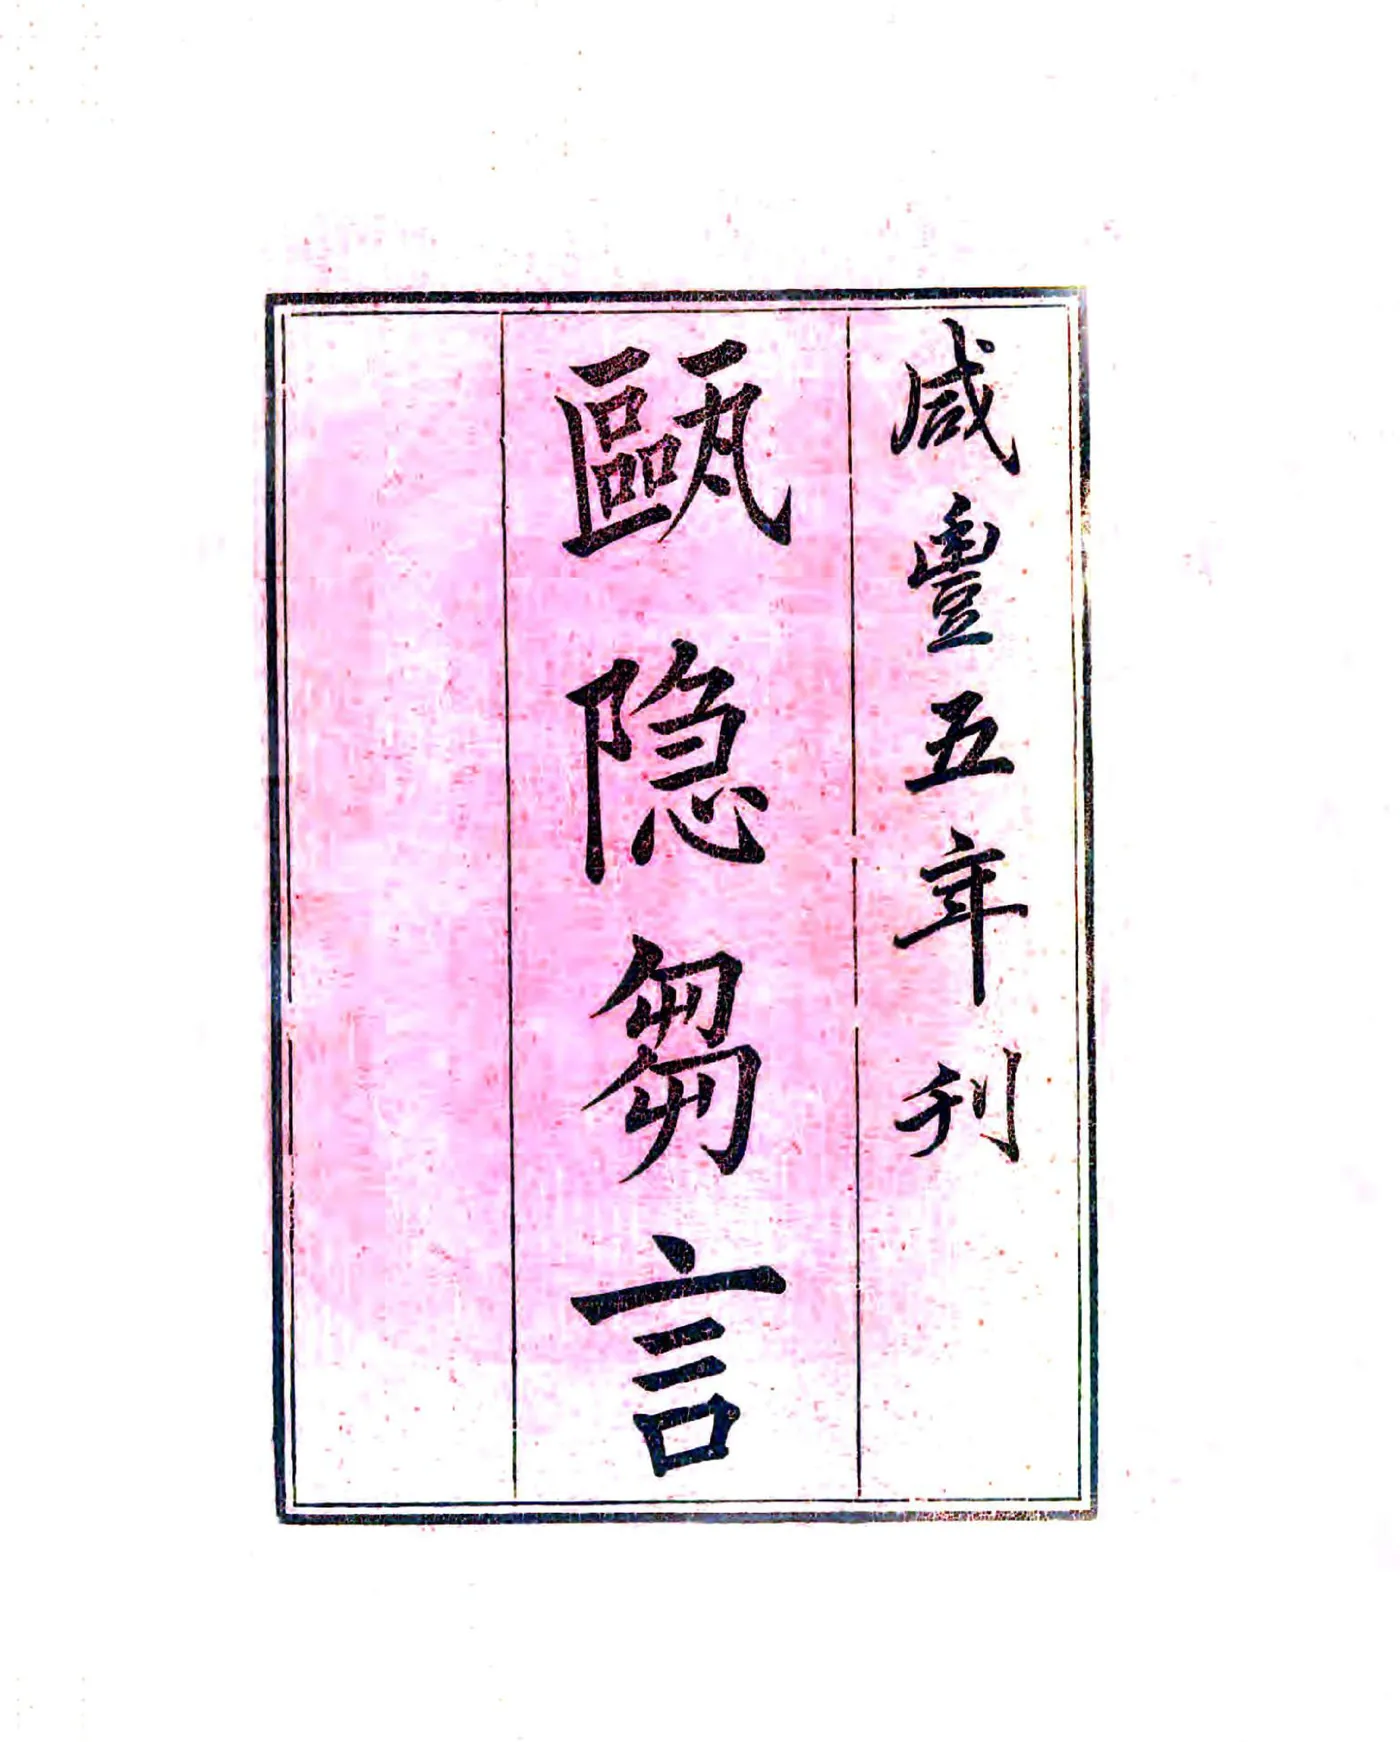 咸豐五年刊
甌隐芻言